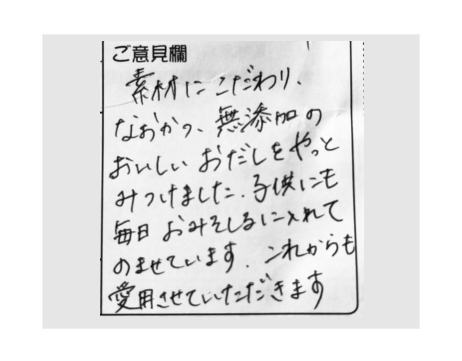 ご意見欄
素材にこだわり、
なおかつ、無添加の
おいしいおだしをやっと
みつけました。子供にも
毎日おみそしるに入れて
のませています。これからも
愛用させていただきます